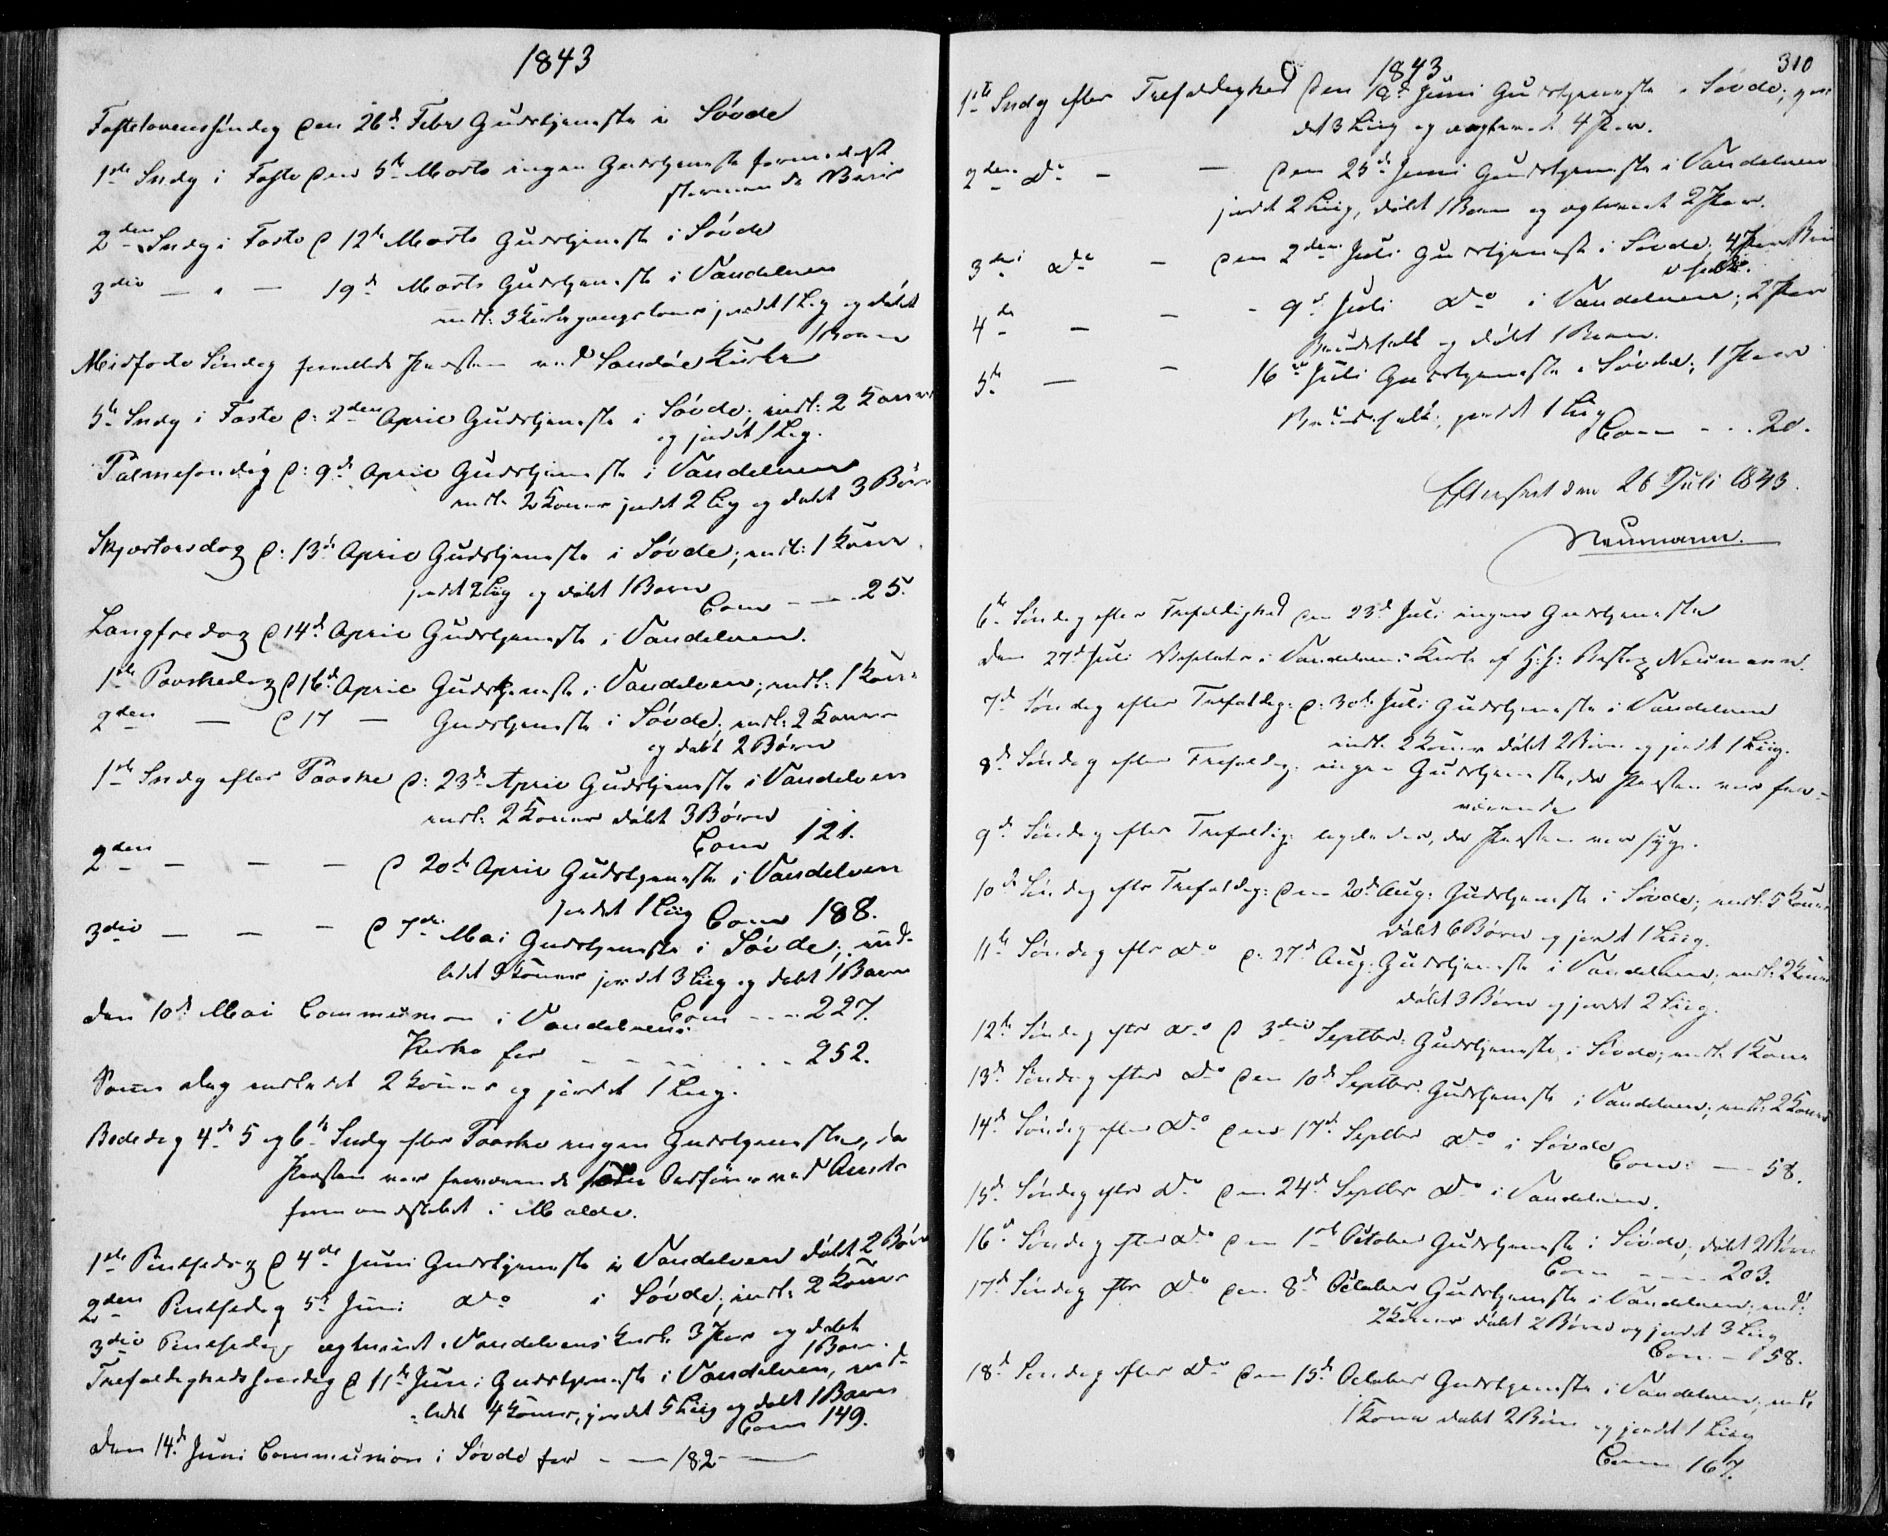 1843
Fastelavenssøndag den 26d Febr Gudstjeneste i Søvde
1ste Sndg i Faste den 5te Marts ingen Gudstjeneste formedelst
stormende Veir
2den Sndg i Faste d 12te Marts Gudstjeneste i Søvde
3die — " — 19d Marts Gudstjeneste i Vandelven
indl: 3 Kirkegangskoner jordet 1 Lig og døbt
1 Barn
Midfaste Søndag forrettede Præsten ved Sandøe Kirke
5te Sndg i Faste d: 2den April Gudstjeneste i Søvde; indl: 2 Koner
og jordet 1 Lig.
Palmesøndag d: 9d April Gudstjeneste i Vandelven
indl. 2 Koner jordet 2 Lig og døbt 3 Børn
Skjærtorsdag d: 13d April Gudstjeneste i Søvde; indl: 1 Kone
jordet 2 Liig og døbt 1 Barn
Com — — 25.
Langfredag d 14d April Gudstjeneste i Vandelven.
1ste Paaskedag d 16d April Gudstjeneste i Vandelven; indl: 1 Kone
2den — d 17 — Gudstjeneste i Søvde; indl: 2 Koner
og døbt 2 Børn
1ste Sndg efter Paaske d: 23d April Gudstjeneste i Vandelven
indl: 2 Koner døbt 3 Børn
Com 121.
2den — — — d 20de April Gudstjeneste i Vandelven
jordet 1 Liig Com 188.
3die — — — d 7de Mai Gudstjeneste i Søvde; ind-
ledet 3 Koner jordet 3 Liig og døbt 1 Barn
Com - - - 227.
den 10d Mai Communion i Vandelvens
Kirke for - - - - - 252.
Samme dag indledet 2 Koner og jordet 1 Liig.
Bededag 4de 5 og 6te Sndg efter Paaske ingen Gudstjeneste, da
Præsten var fraværende som Ordfører ved Amts
formandskabet i Molde.
1ste Pintsedag d 4de Juni Gudstjeneste i Vandelven døbt 2 Børn
2den Pintsedag 5te Juni do i Søvde; indl: 2 Koner
3die Pintsedag ægteviet i Vandelvens Kirke 3 Par og døbt
1 Barn.
Trefoldighedssøndag d 11te Juni Gudstjeneste i Vandelven, ind-
ledet 4 Koner, jordet 5 Liig og døbt 1 Barn
Com 149.
den 14d Juni Communion i Søvde for - — 182 - —
310
1843.
1ste Sndg efter Trefoldighed den 19d Juni Gudstjeneste i Søvde; jor-
det 3 Liig og ægteviet 4 Par.
2den do — — den 25d Juni Gudstjeneste i Vandelven
jordet 2 Liig, døbt 1 Barn og ægteviet 2 Par.
3die do — den 2den Juli Gudstjeneste i Søvde 4 Par Bru-
defolk.
4de — — - 9d Juli do i Vandelven; 2 Par
Brudefolk og døbt 1 Barn.
5te — — 16d Juli Gudstjeneste i Søvde; 1 Par
Brudefolk; jordet 1 Liig
Com - - - 20.
Efterseet den 26 Juli 1843.
Neumann.
6te Søndag efter Trefoldighed den 23d Juli ingen Gudstjeneste
den 27d Juli Visitats i Vandelvens Kirke af H: H: Biskop Neumann.
7d Søndag efter Trefoldig: d: 30te Juli Gudstjeneste i Vandelven
indl. 2 Koner døbt 2 Børn og jordet 1 Liig.
8d Søndag efter Trefoldig: ingen Gudstjeneste, da Præsten var fra-
værende
9d Søndag efter Trefoldig: ligeledes, da Præsten var syg.
10de Søndag efter Trefoldig: den 20d Aug: Gudstjeneste i Søvde; indl: 5 Koner
døbt 6 Børn og jordet 1 Liig.
11te Søndag eftr do d: 27d Aug: Gudstjeneste i Vandelven; indl: 2 Koner
døbt 3 Børn og jordet 2 Liig.
12te Søndag eftr do d 3die Septbr: Gudstjeneste i Søvde; indl: 1 Kone
13d Søndag efter do den 10d Septbr: Gudstjeneste i Vandelven; indl: 2 Koner
14d Søndag efter do den 17d Septbr do i Søvde
Com: — - 58.
15d Søndag eftr do den 24d Septbr do i Vandelven.
16d Søndag efter do den 1ste October Gudstjeneste i Søvde; døbt 2 Børn
Com - — - 203.
17d Søndag eftr do den 8d October Gudstjeneste i Vandelven; indl:
2 Koner døbt 2 Børn og jordet 3 Liig
Com — 158.
18d Søndag efter do den 15d October Gudstjeneste i Vandelven; indl:
1 Kone døbt 2 Børn og jordet 1 Liig
Com 167.